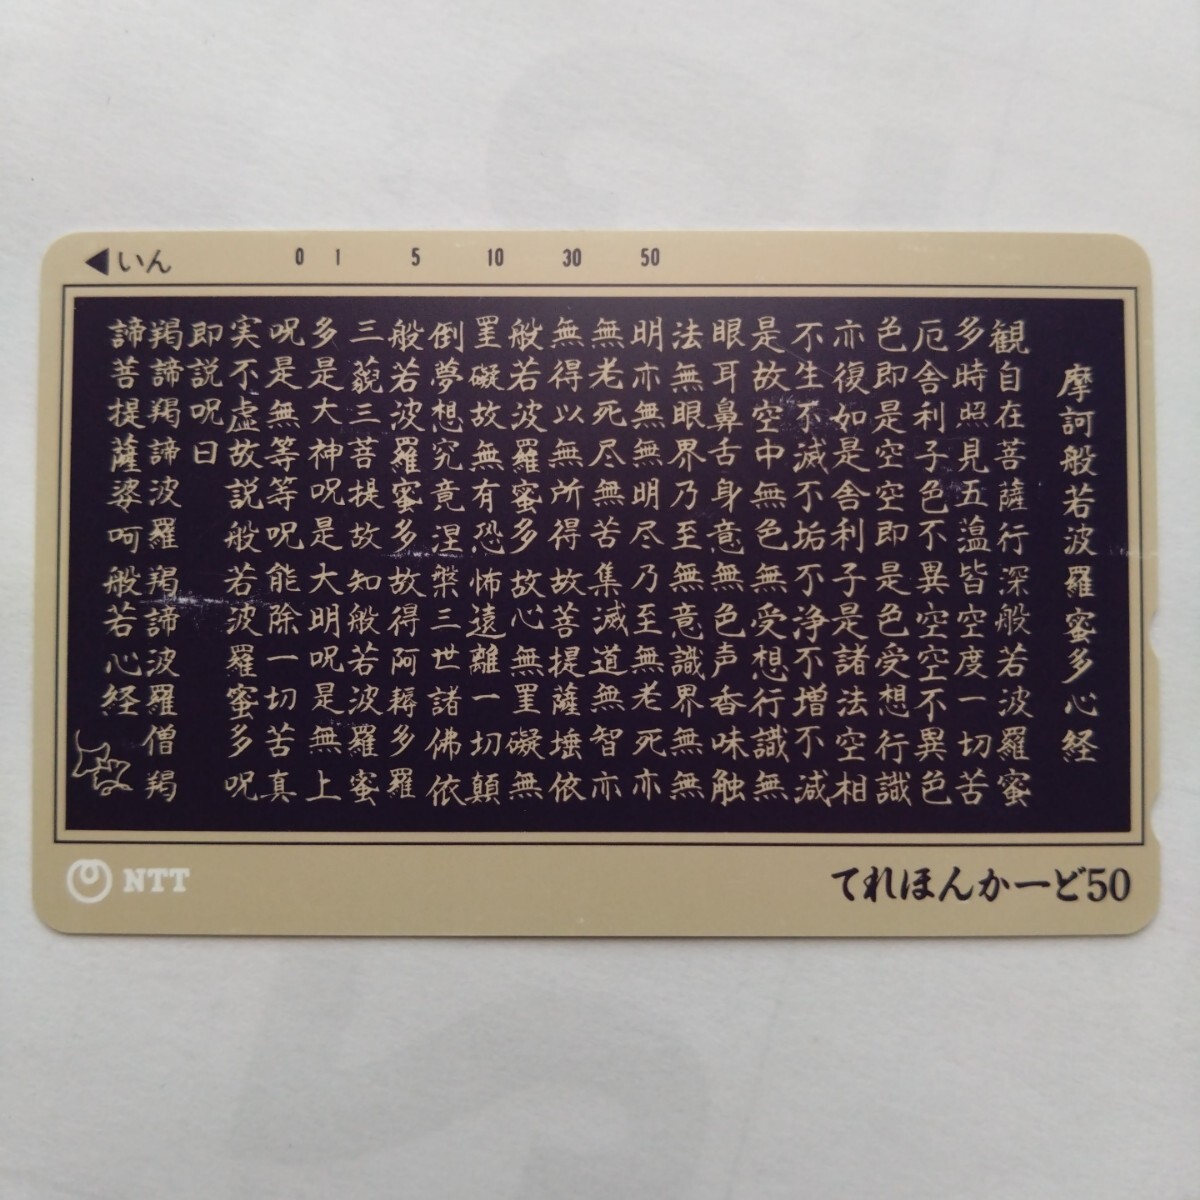 ◀いん
0 1 5 10 30 50
摩訶般若波羅蜜多心経
観自在菩薩行深般若波羅蜜
多時照見五蘊皆空度一切苦
厄舎利子色不異空空不異色
色即是空空即是色受想行識
亦復如是舎利子是諸法空相
不生不滅不垢不浄不増不減
是故空中無色無受想行識無
眼耳鼻舌身意無色声香味触
法無眼界乃至無意識界無無
明亦無無明尽乃至無老死亦
無老死尽無苦集滅道無智亦
無得以無所得故菩提薩埵依
般若波羅蜜多故心無罣礙無
罣礙故無有恐怖遠離一切顛
倒夢想究竟涅槃三世諸佛依
般若波羅蜜多故得阿耨多羅
三藐三菩提故知般若波羅蜜
多是大神呪是大明呪是無上
呪是無等等呪能除一切苦真
実不虚故説般若波羅蜜多呪
即説呪曰
羯諦羯諦波羅羯諦波羅僧羯
諦菩提薩婆呵般若心経
NTT
てれほんかーど50